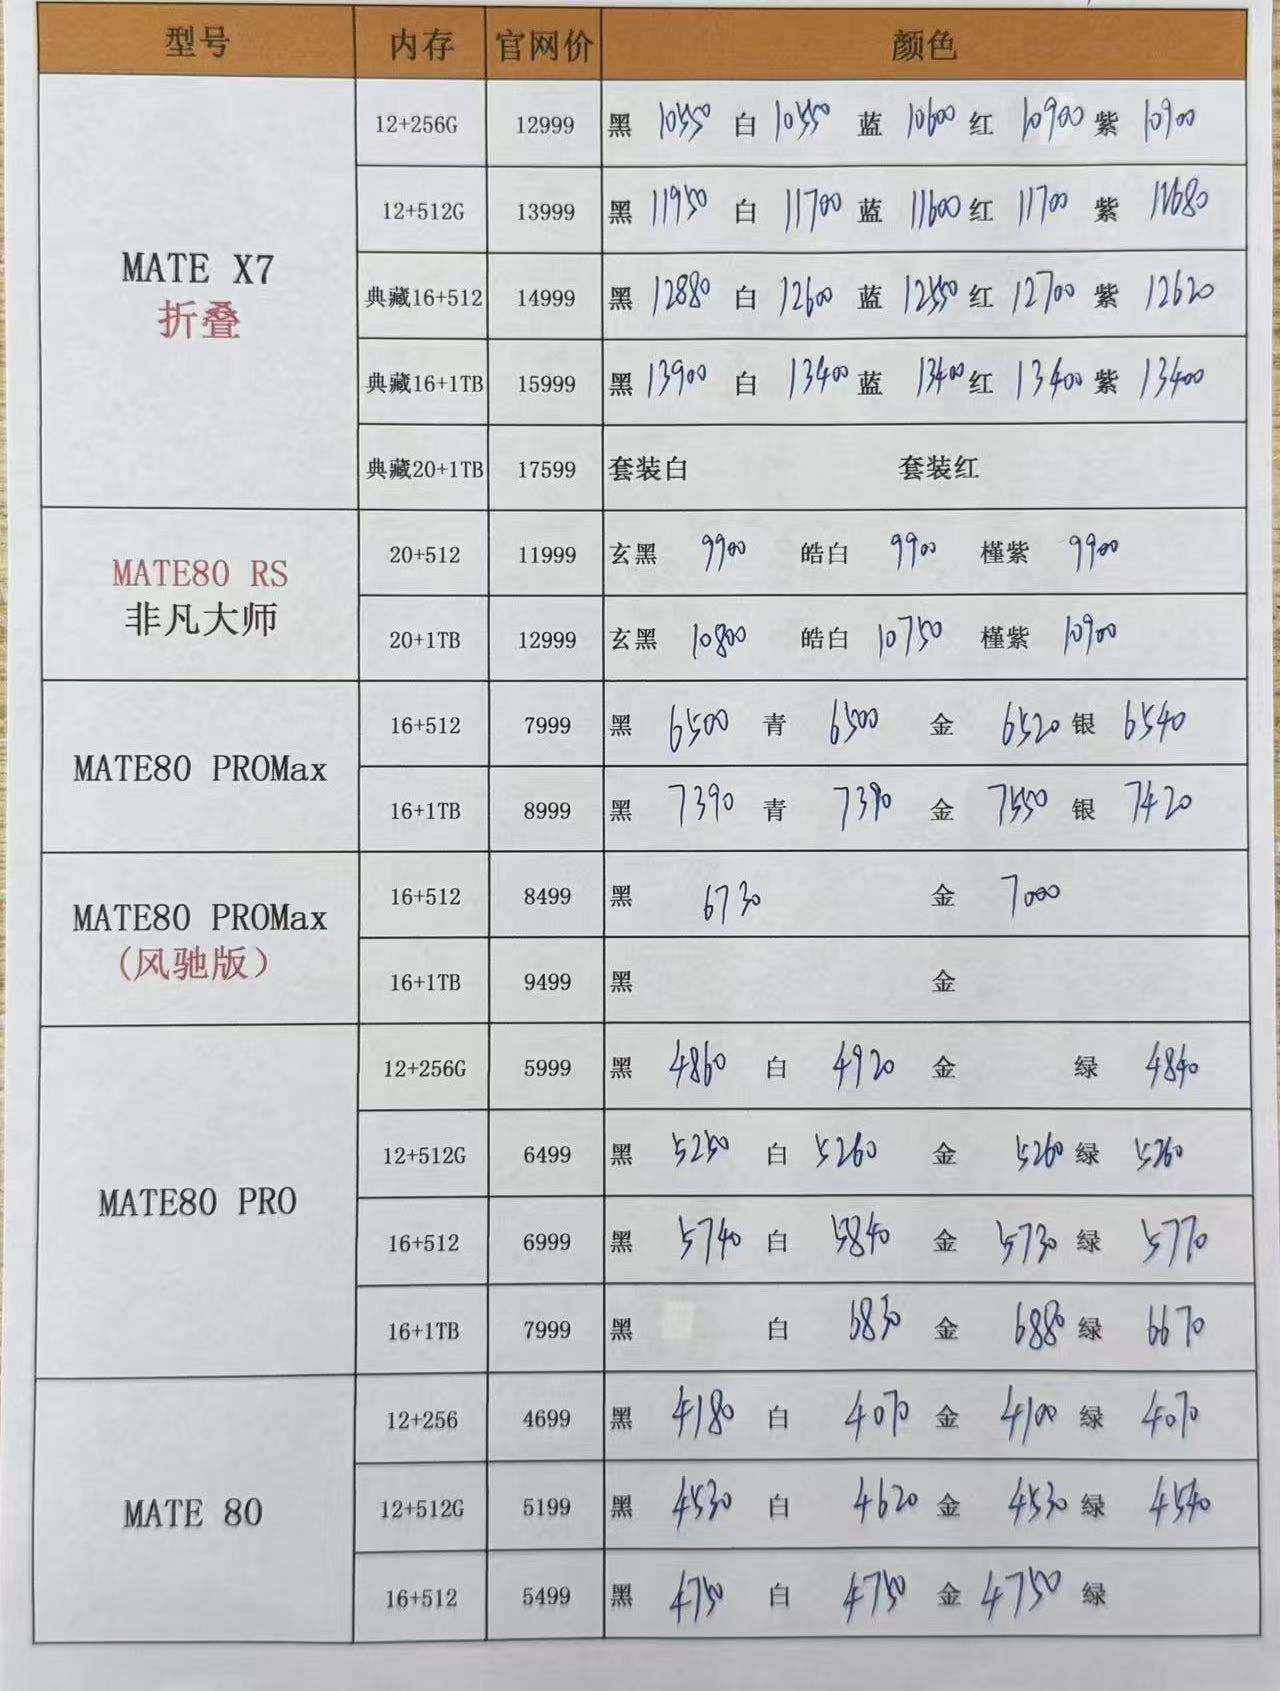 型号 内存 官网价 颜色
MATE X7
折叠
12+256G 12999 黑 10550 白 10550 蓝 10600 红 10900 紫 10900
12+512G 13999 黑 11950 白 11700 蓝 11600 红 11700 紫 11680
典藏16+512 14999 黑 12880 白 12600 蓝 12550 红 12700 紫 12620
典藏16+1TB 15999 黑 13900 白 13400 蓝 13400 红 13400 紫 13400
典藏20+1TB 17599 套装白 套装红
MATE80 RS
非凡大师
20+512 11999 玄黑 9900 皓白 9900 槿紫 9900
20+1TB 12999 玄黑 10800 皓白 10750 槿紫 10900
MATE80 PROMax
16+512 7999 黑 6500 青 6500 金 6520 银 6540
16+1TB 8999 黑 7390 青 7390 金 7550 银 7420
MATE80 PROMax
(风驰版)
16+512 8499 黑 6730 金 7000
16+1TB 9499 黑 金
MATE80 PRO
12+256G 5999 黑 4860 白 4920 金 绿 4840
12+512G 6499 黑 5250 白 5260 金 5260 绿 5260
16+512 6999 黑 5740 白 5840 金 5730 绿 5770
16+1TB 7999 黑 白 6830 金 6880 绿 6670
MATE 80
12+256 4699 黑 4180 白 4070 金 4100 绿 4070
12+512G 5199 黑 4530 白 4620 金 4530 绿 4540
16+512 5499 黑 4750 白 4750 金 4750 绿